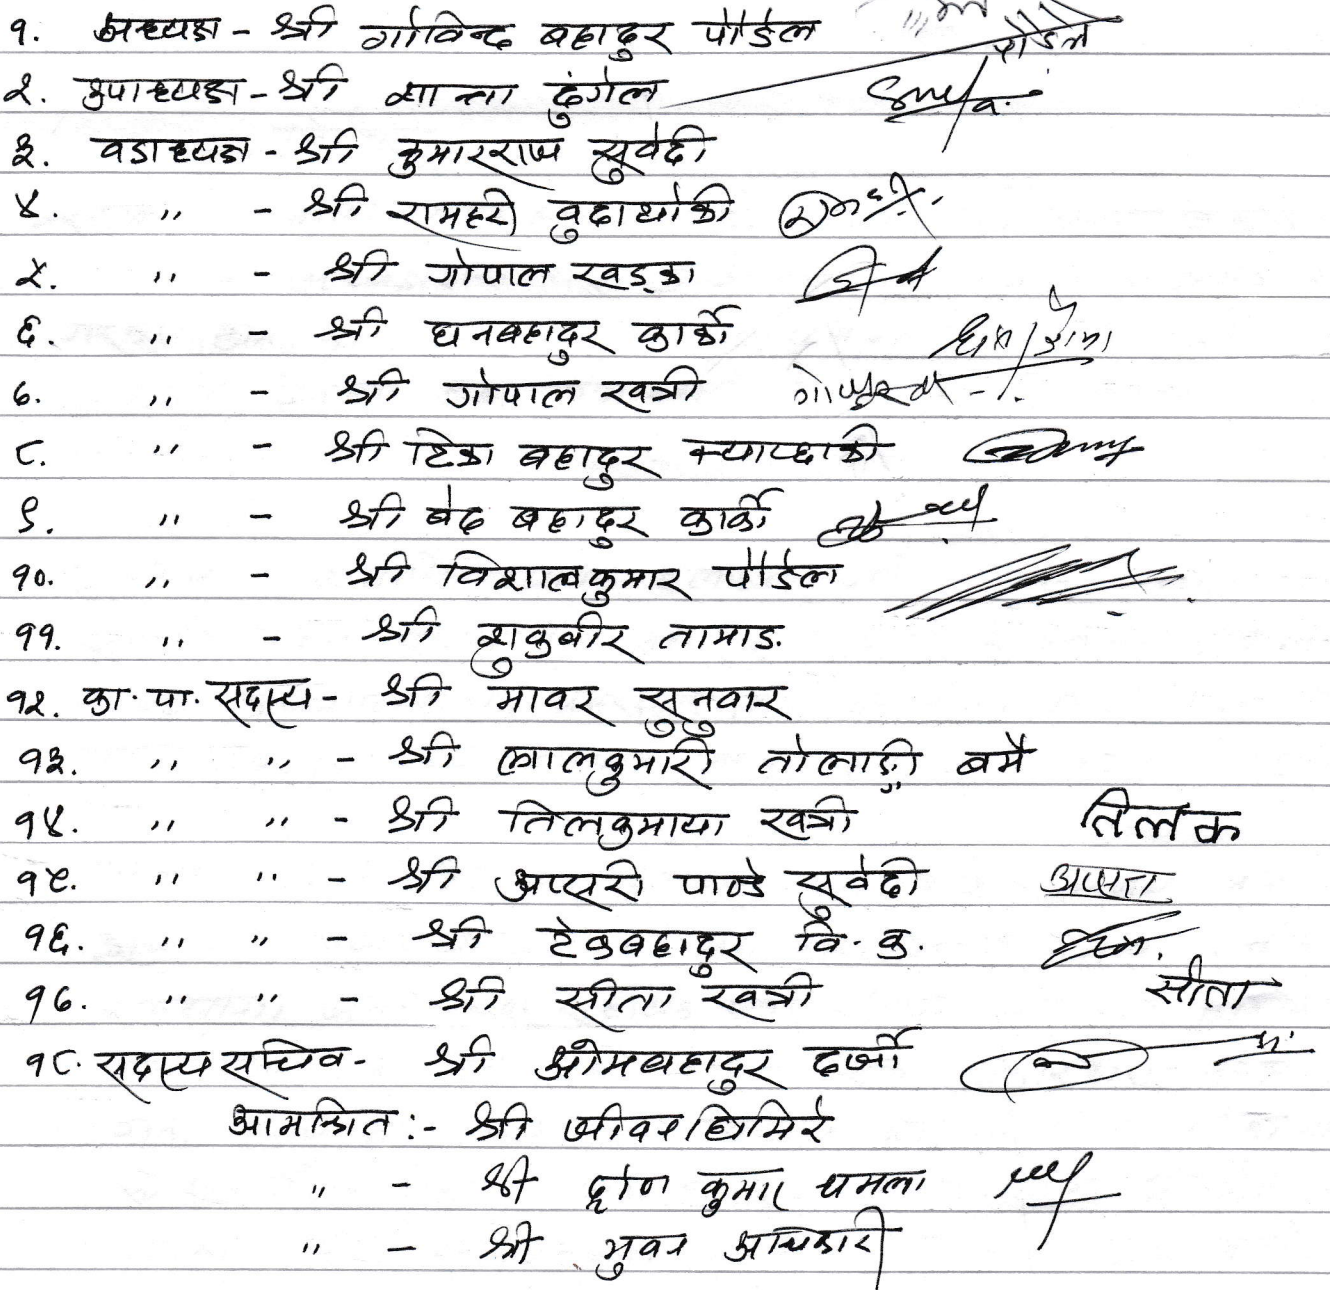 १. अध्यक्ष - श्री गोविन्द बहादुर पौडेल पौडेल
२. उपाध्यक्ष - श्री शान्ता दुंगेल
३. वडाध्यक्ष - श्री कुमारराज सुवेदी
४. ,, - श्री रामहरी वुढाथोकी
५. ,, - श्री गोपाल खड्का
६. ,, - श्री धनबहादुर कार्की
७. ,, - श्री गोपाल खत्री
८. ,, - श्री टिका बहादुर क्याप्छाकी
९. ,, - श्री बेद बहादुर कार्की
१०. ,, - श्री विशालकुमार पौडेल
११. ,, - श्री शुकुबीर तामाङ
१२. का. पा. सदस्य - श्री मावर सुनुवार
१३. ,, ,, - श्री लालकुमारी तोलाङ्गी बमै
१४. ,, ,, - श्री तिलकुमाया खत्री तिलक
१५. ,, ,, - श्री अप्सरी पाण्डे सुवेदी अप्सरा
१६. ,, ,, - श्री टेकबहादुर वि. क.
१७. ,, ,, - श्री सीता खत्री सीता
१८. सदस्य सचिव - श्री ओमबहादुर दर्जी
आमन्त्रित :- श्री जीवन घिमिरे
,, - श्री द्रोण कुमार चमला
,, - श्री भुवन अधिकारी